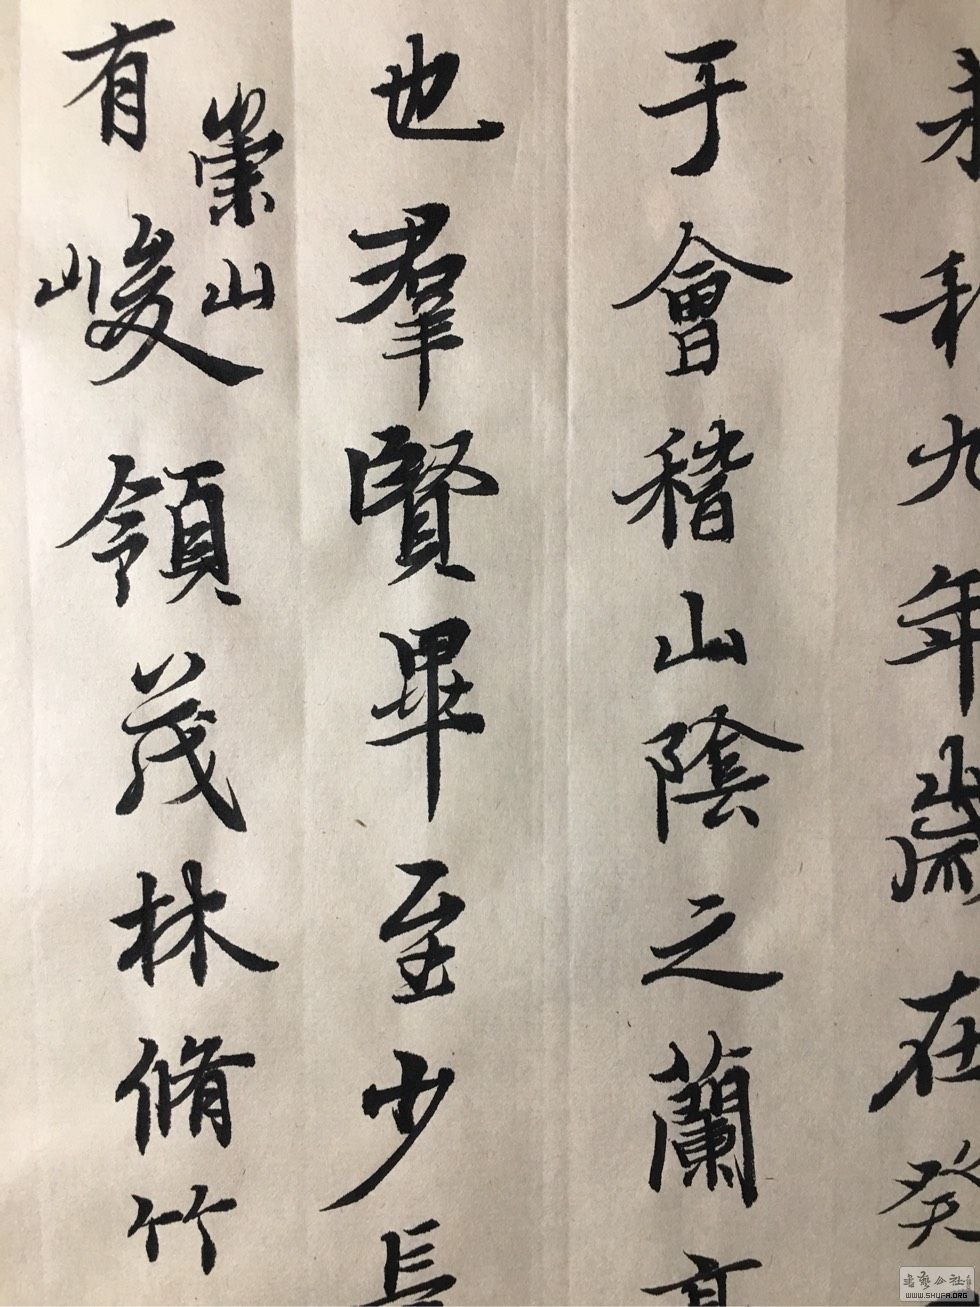 永和九年歲在癸
于會稽山陰之蘭亭
也羣賢畢至少長
有崇山峻領茂林脩竹
書藝公社
WWW.SHUFA.ORG